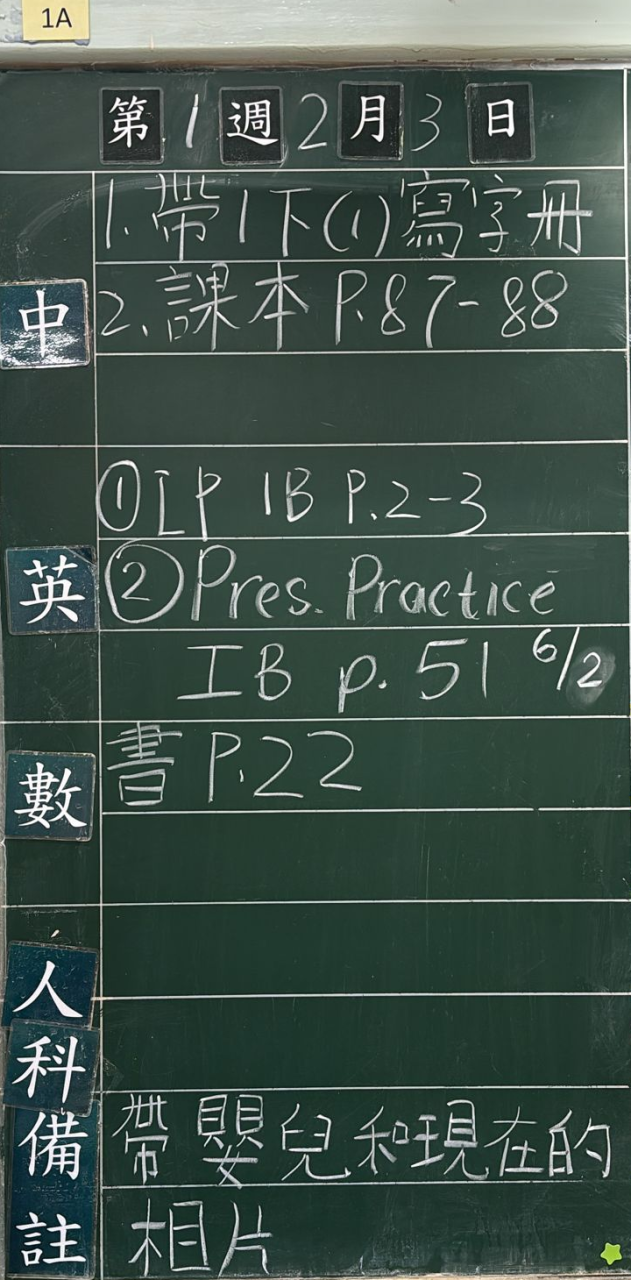 1A
第1週2月3日
1.帶1下(1)寫字冊
中
2.課本 P.87-88
①IP 1B P.2-3
英
②Pres. Practice
IB p. 51 6/2
數
書 P.22
人
科
備
註
帶嬰兒和現在的
相片